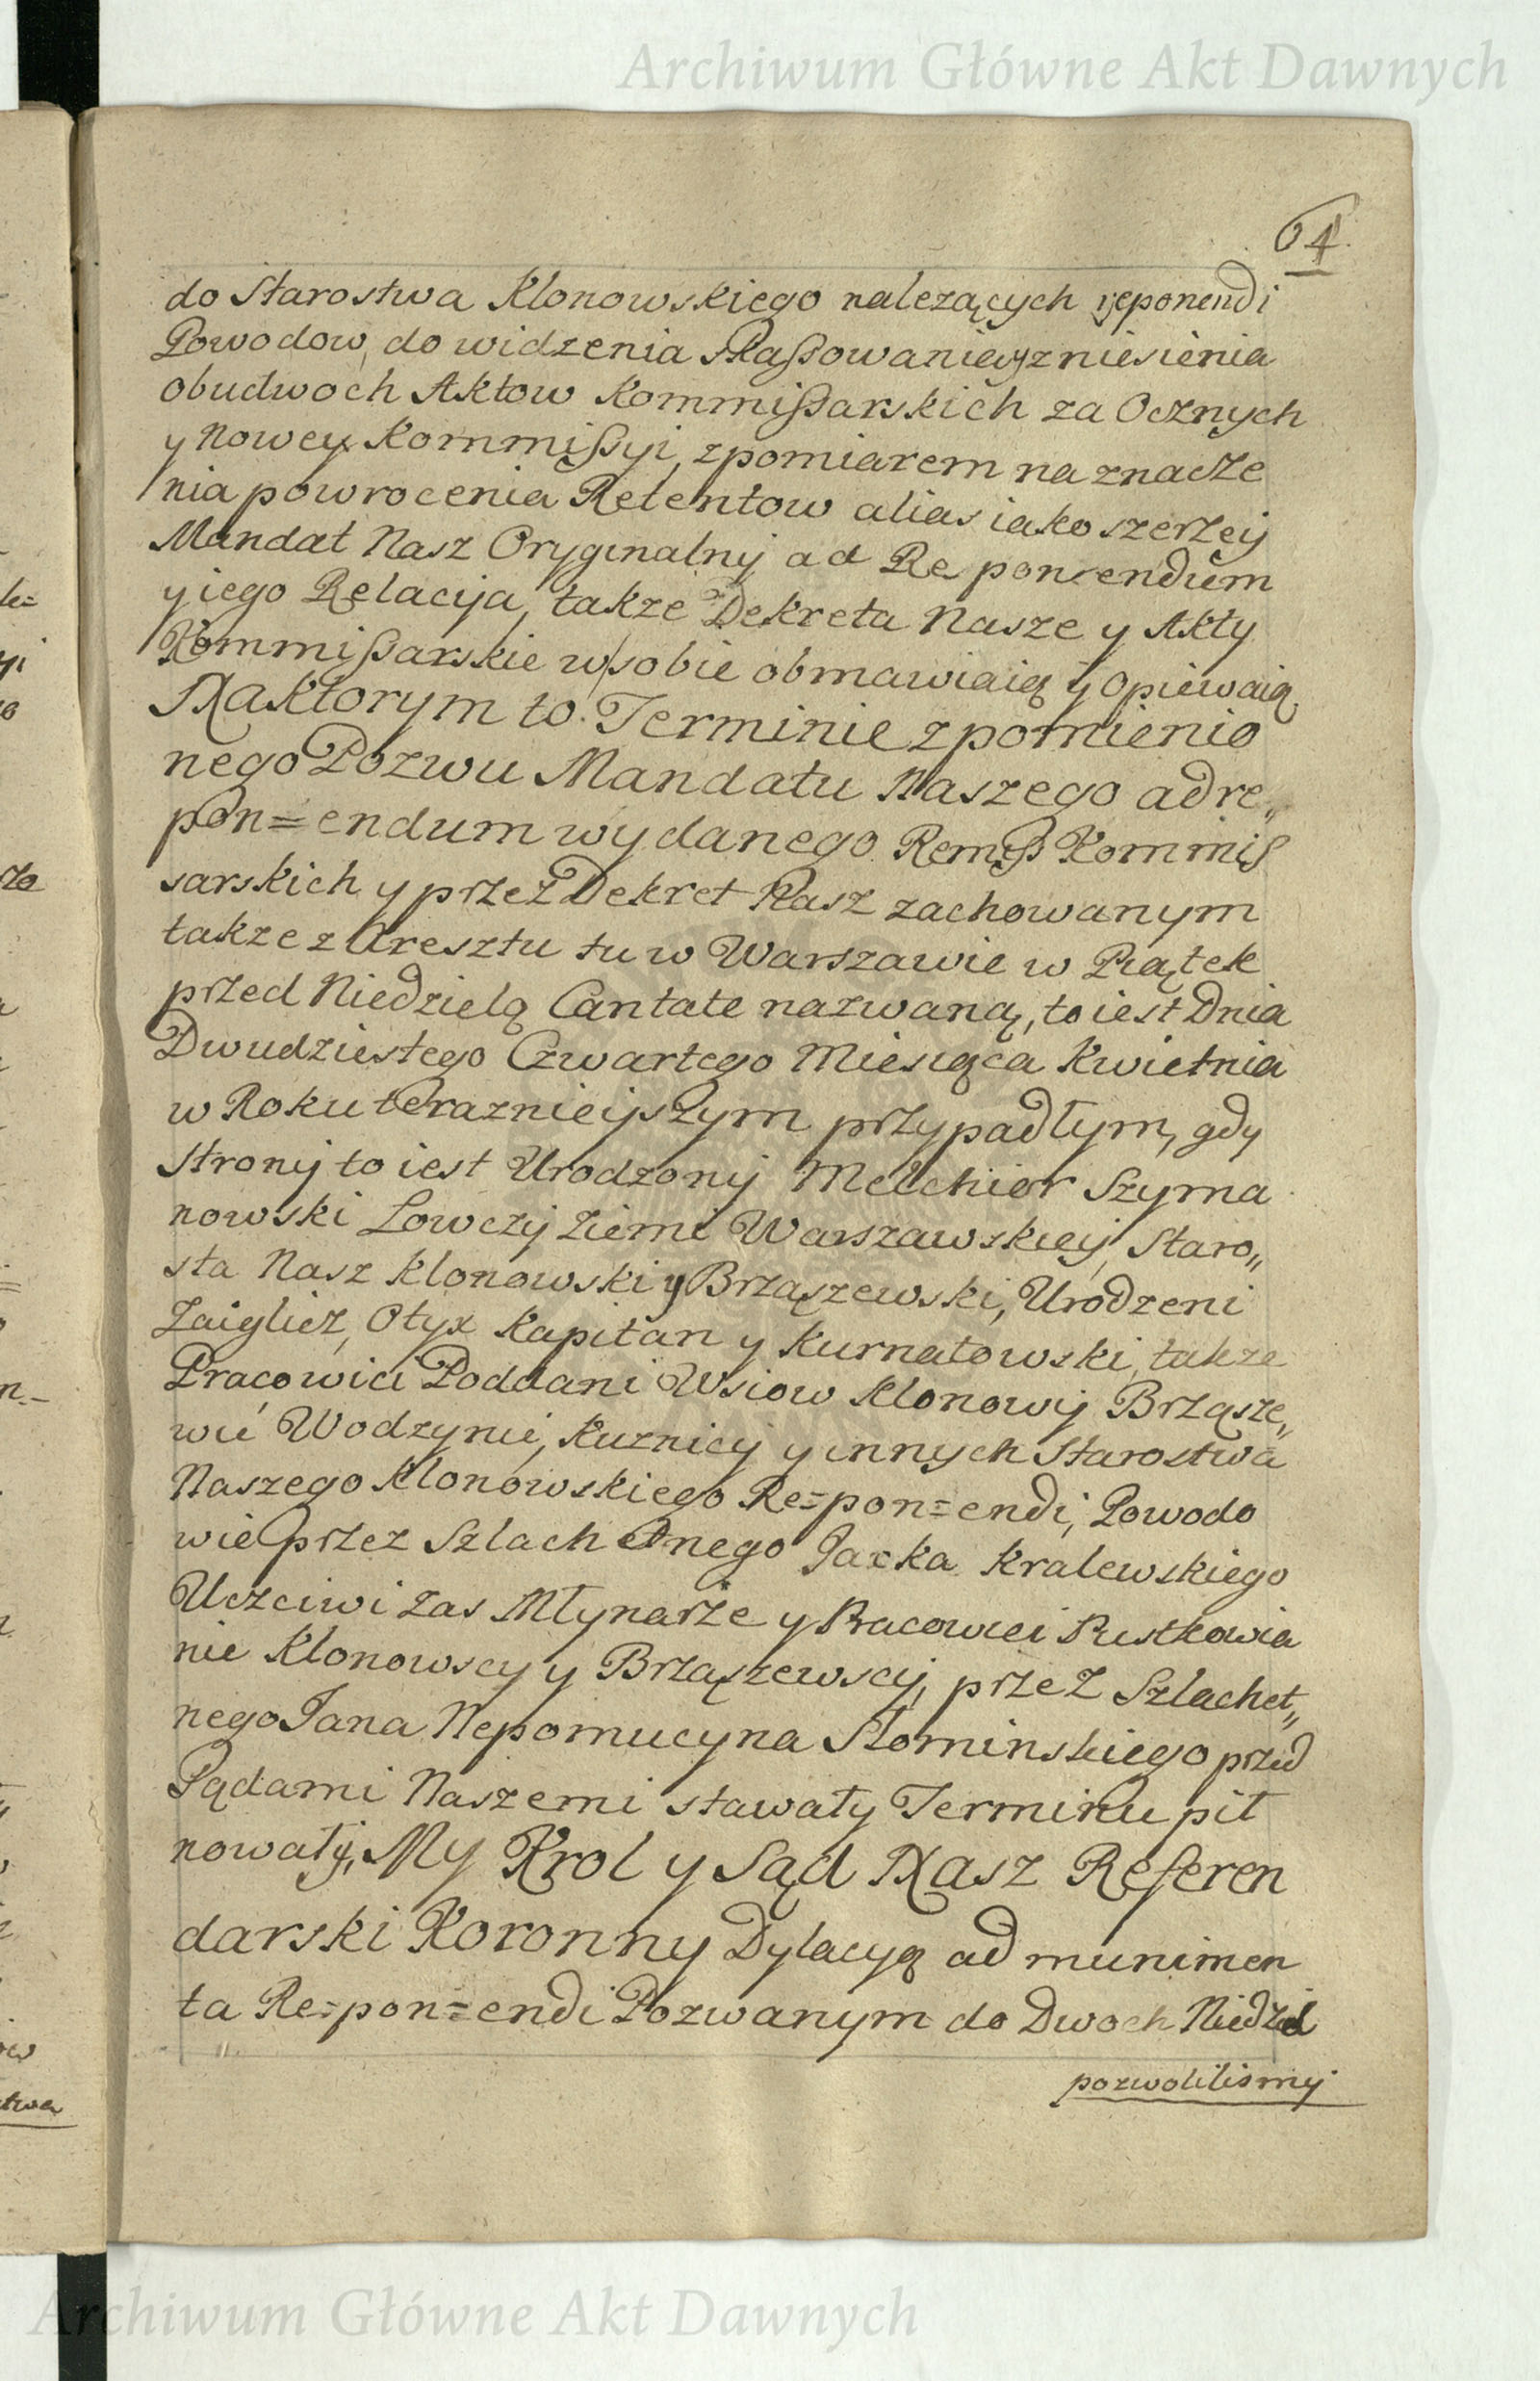 Archiwum Główne Akt Dawnych
64.
do Starostwa Klonowskiego nalezących reponendi
Powodow, do widzenia skaßowania y zniesienia
obudwoch Aktow Kommißarskich za Ocznych
y Nowey Kommißyi, z pomiarem na znacze
nia powrocenia Retentow alias iako szerzey
Mandat Nasz Oryginalny ad Reponendum
y iego Relacyia, takze Dekreta Nasze y Akty
Kommißarskie w sobie obmawiaią y opiewaią
Na ktorym to Terminie z pomienio
nego Pozwu Mandatu Naszego ad re„
pon=endum wydanego Remiß Kommiß
sarskich y przez Dekret Nasz zachowanym
takze z Aresztu tu w Warszawie w Piątek
przed Niedzielą Cantate nazwaną, to iest Dnia
Dwudziestego Czwartego Miesiąca Kwietnia
w Roku terazniejszym przypadłym, gdy
Strony to iest Urodzony Melchior Szyma
nowski Lowczy Ziemi Warszawskiey, Staro„
sta Nasz Klonowski y Brząszewski, Urodzeni
Zaigliez, Otyx Kapitan y Kurnatowski, takze
Pracowici Poddani Wsiow Klonowy Brząsze„
wic Wodzynie, Kuznicy y innych Starostwa
Naszego Klonowskiego Re=pon=endi, Powodo
wie przez Szlachetnego Jacka Kralewskiego
Uczciwi zas Młynarze y Pracowici Pustkowia
nie Klonowscy y Brząszewscy, przez Szlachet„
nego Jana Nepomucyna Słominskiego przed
Sądami Naszemi stawały Terminu pil
nowały, My Krol y Sąd Nasz Referen
darski Koronny Dylacyą ad munimen
ta Re=pon=endi Pozwanym do Dwoch Niedziel
pozwolilismy
Archiwum Główne Akt Dawnych